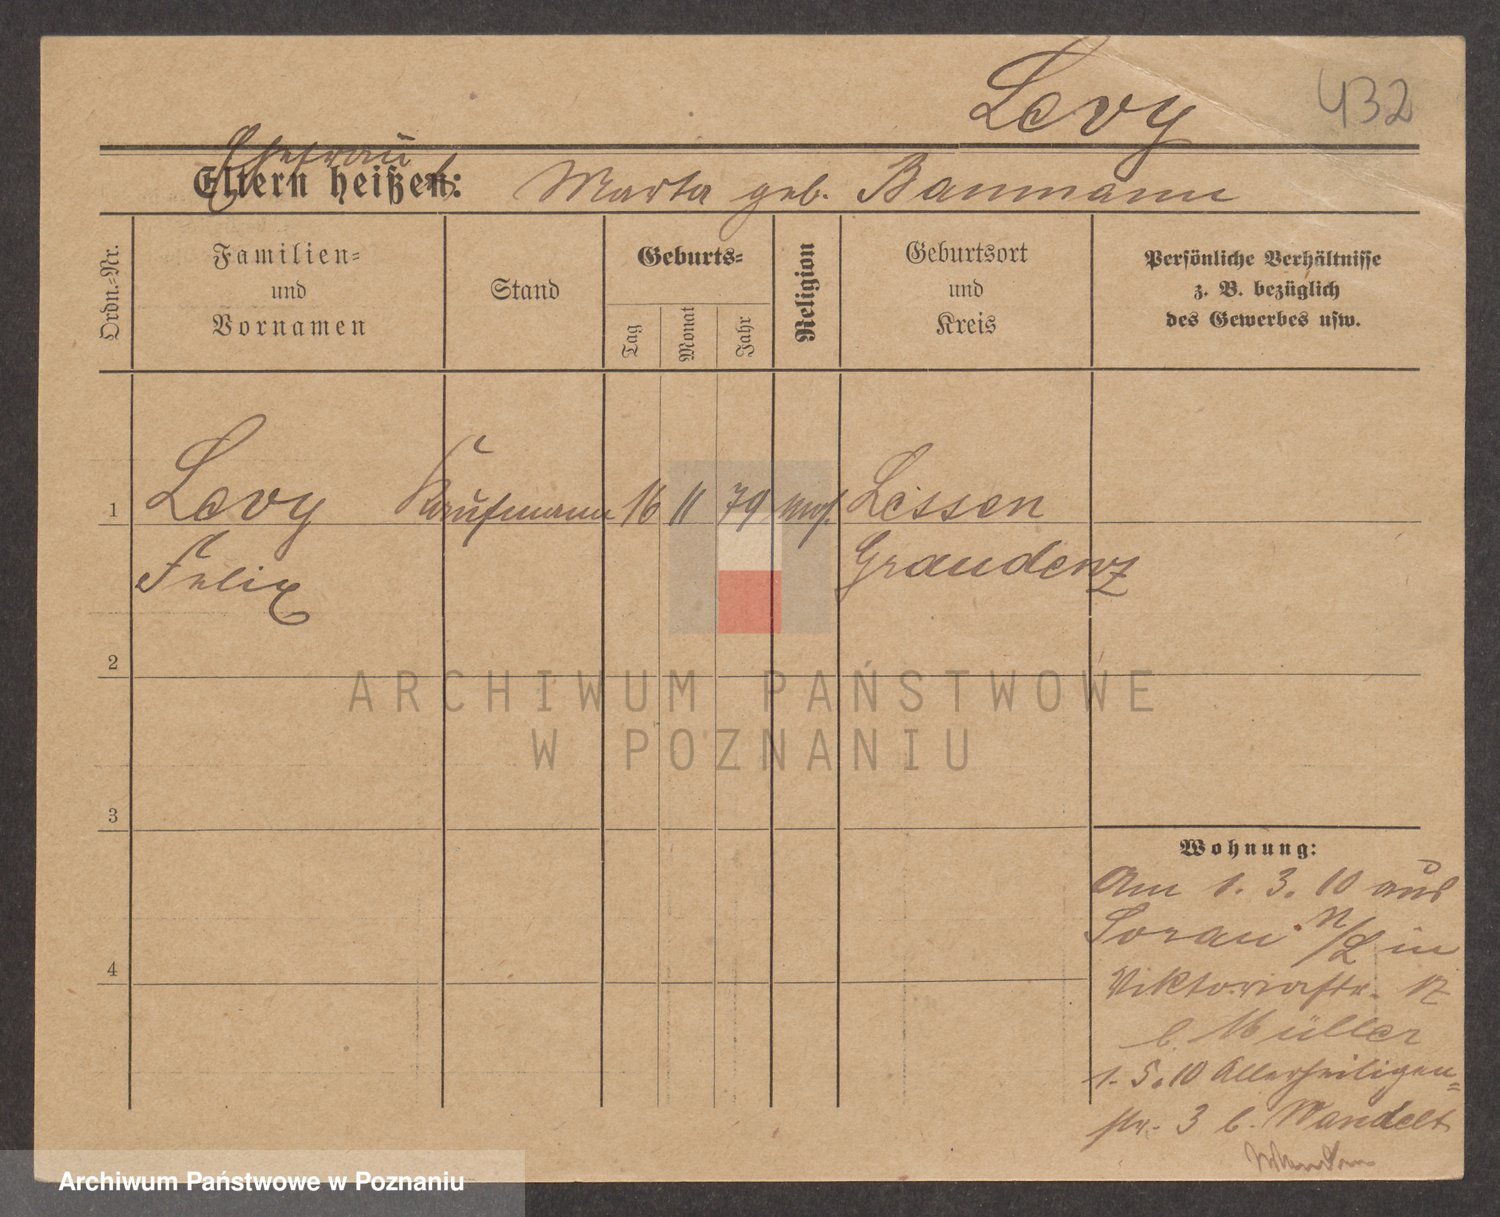 Levy
432
Ehefrau
Eltern heißen: Marta geb. Baumann
Ordn.-Nr.
Familien-
und
Vornamen
Stand
Geburts-
Tag
Monat
Jahr
Religion
Geburtsort
und
Kreis
Persönliche Verhältnisse
z. B. bezüglich
des Gewerbes usw.
1
Levy
Kaufmann
16
11
79
mos.
Lessen
Felix
Graudenz
2
ARCHIWUM PAŃSTWOWE
W POZNANIU
3
Wohnung:
Am 1. 3. 10 aus
Sorau N/L in
4
Viktoriastr. 17
b. Müller
1. 5. 10 Allerheiligen-
str. 3 b. Wandelt
Archiwum Państwowe w Poznaniu